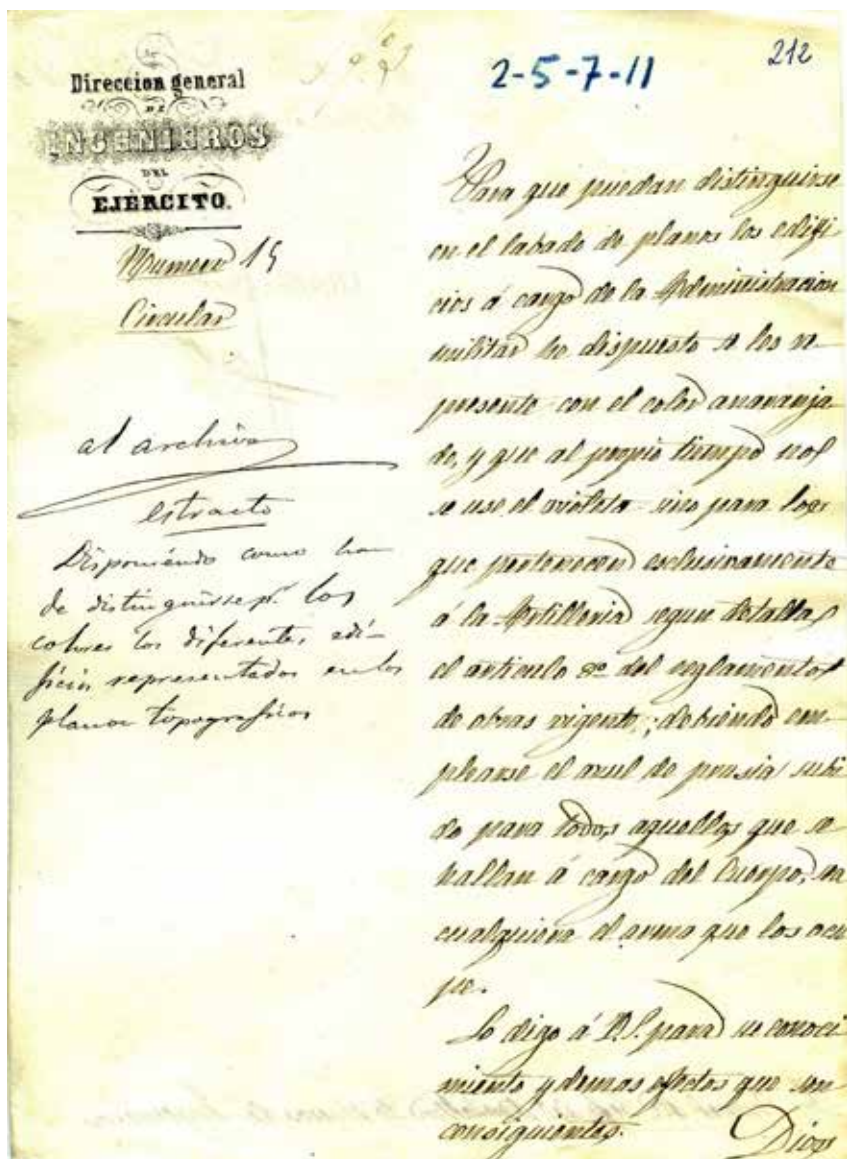 Direccion general
DE
INGENIEROS
DEL
EJÉRCITO.
Numero 15
Circular
al archivo
estracto
Disponiendo como han
de distinguirse pr. los
colores los diferentes edi-
ficios representados en los
planos topograficos
2-5-7-11
212
Para que puedan distinguirse
en el labado de planos los edifi
cios á cargo de la Administracion
militar he dispuesto se los re-
presente con el color anaranja-
do, y que al propio tiempo no
se use el violeta sino para los
que pertenecen esclusivamente
á la Artilleria segun detalla
el articulo 8º del reglamento
de obras vigente; debiendo em-
plearse el azul de prusia subi
do para todos aquellos que se
hallan á cargo del Cuerpo, sea
cualquiera el arma que los ocu
pe.
Lo digo á V.S. para su conoci
miento y demas efectos que son
consiguientes.
Dios